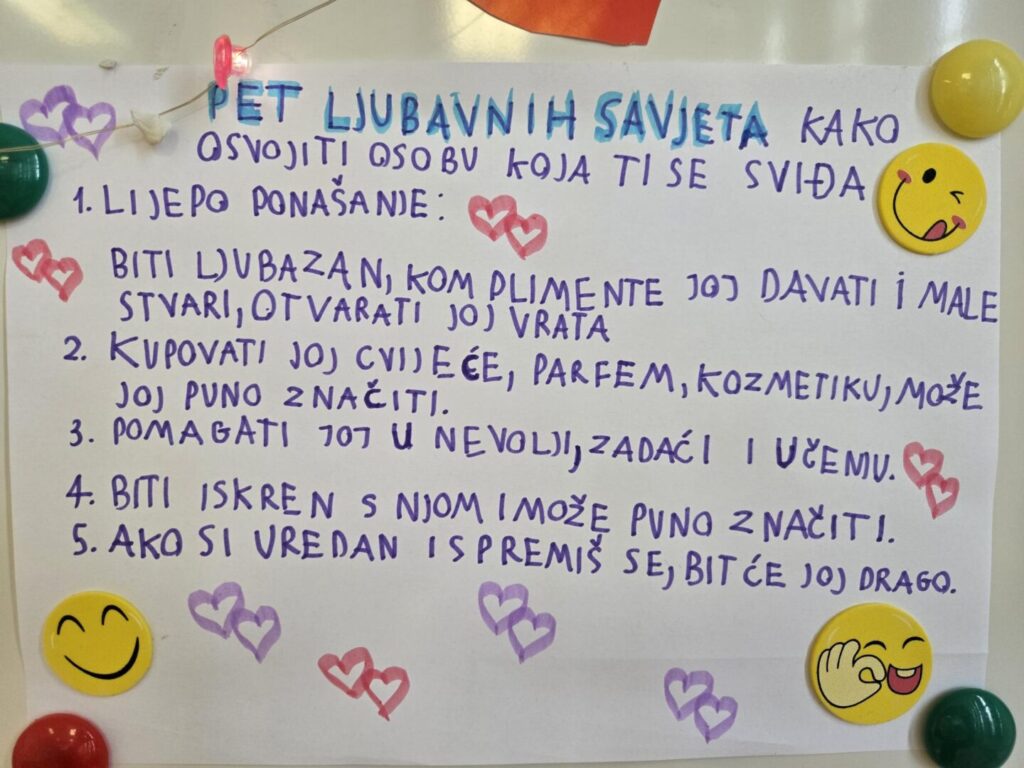 PET LJUBAVNIH SAVJETA KAKO
OSVOJITI OSOBU KOJA TI SE SVIĐA
1. LIJEPO PONAŠANJE:
BITI LJUBAZAN, KOMPLIMENTE JOJ DAVATI I MALE
STVARI, OTVARATI JOJ VRATA
2. KUPOVATI JOJ CVIJEĆE, PARFEM, KOZMETIKU, MOŽE
JOJ PUNO ZNAČITI.
3. POMAGATI JOJ U NEVOLJI, ZADAĆI I UČEMU.
4. BITI ISKREN S NJOM I MOŽE PUNO ZNAČITI.
5. AKO SI UREDAN I SPREMIŠ SE, BIT ĆE JOJ DRAGO.